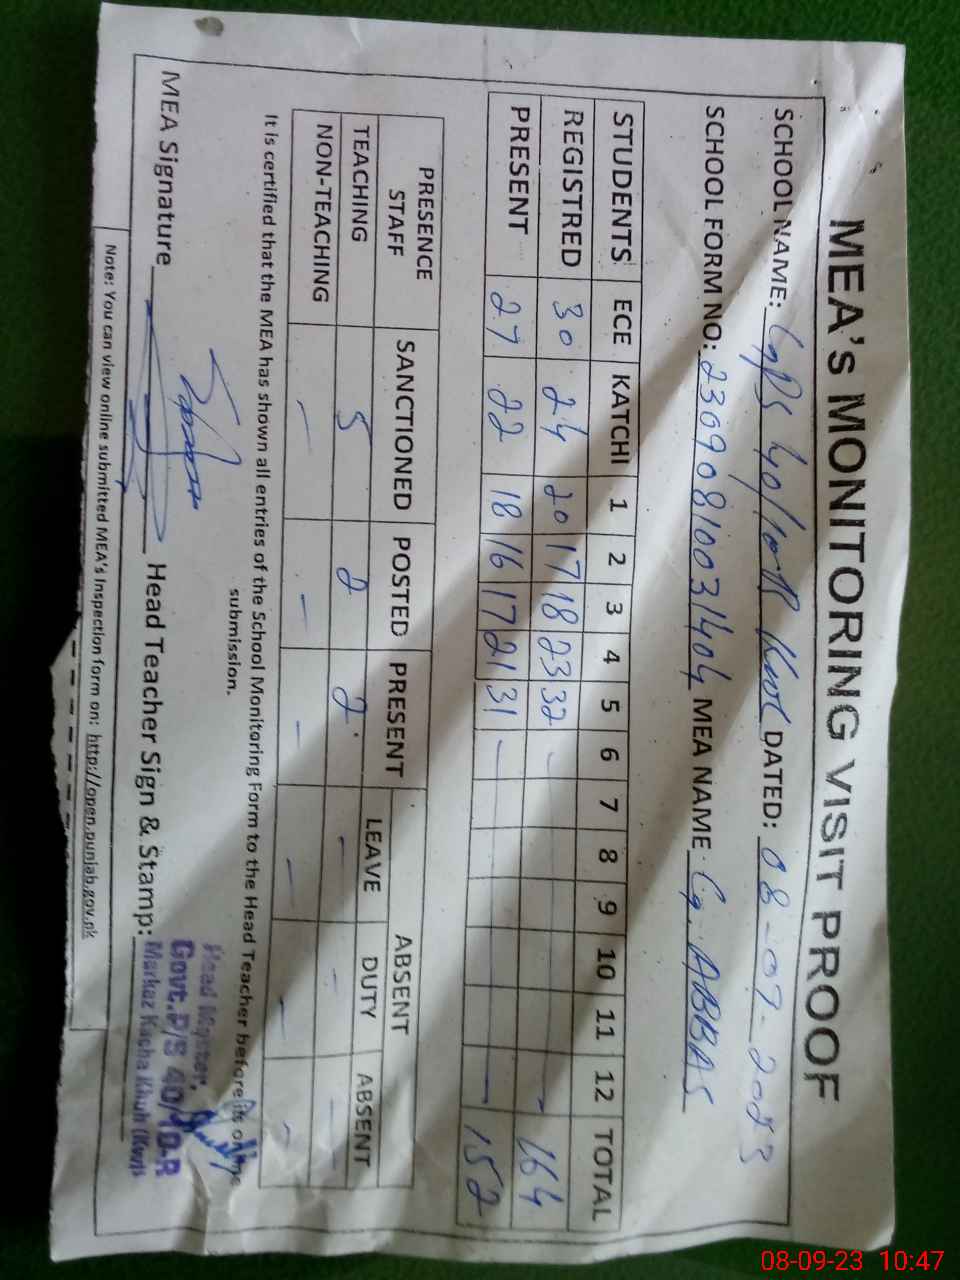 MEA's MONITORING VISIT PROOF
SCHOOL NAME: GPS 40/10R Kwl DATED: 08-09-2023
SCHOOL FORM NO: 23090810031404 MEA NAME: G. ABBAS
STUDENTS ECE KATCHI 1 2 3 4 5 6 7 8 9 10 11 12 TOTAL
REGISTRED 30 24 20 17 18 23 32 - 164
PRESENT 27 22 18 16 17 21 31 - 152
PRESENCE STAFF SANCTIONED POSTED PRESENT ABSENT
LEAVE DUTY ABSENT
TEACHING 5 2 2 - - -
NON-TEACHING - - - - - -
It is certified that the MEA has shown all entries of the School Monitoring Form to the Head Teacher before its online
submission.
MEA Signature Head Teacher Sign & Stamp:
Head Master,
Govt.P/S 40/10-R
Markaz Kacha Khuh (Kwl)
Note: You can view online submitted MEA's Inspection form on: http://open.punjab.gov.pk
08-09-23 10:47